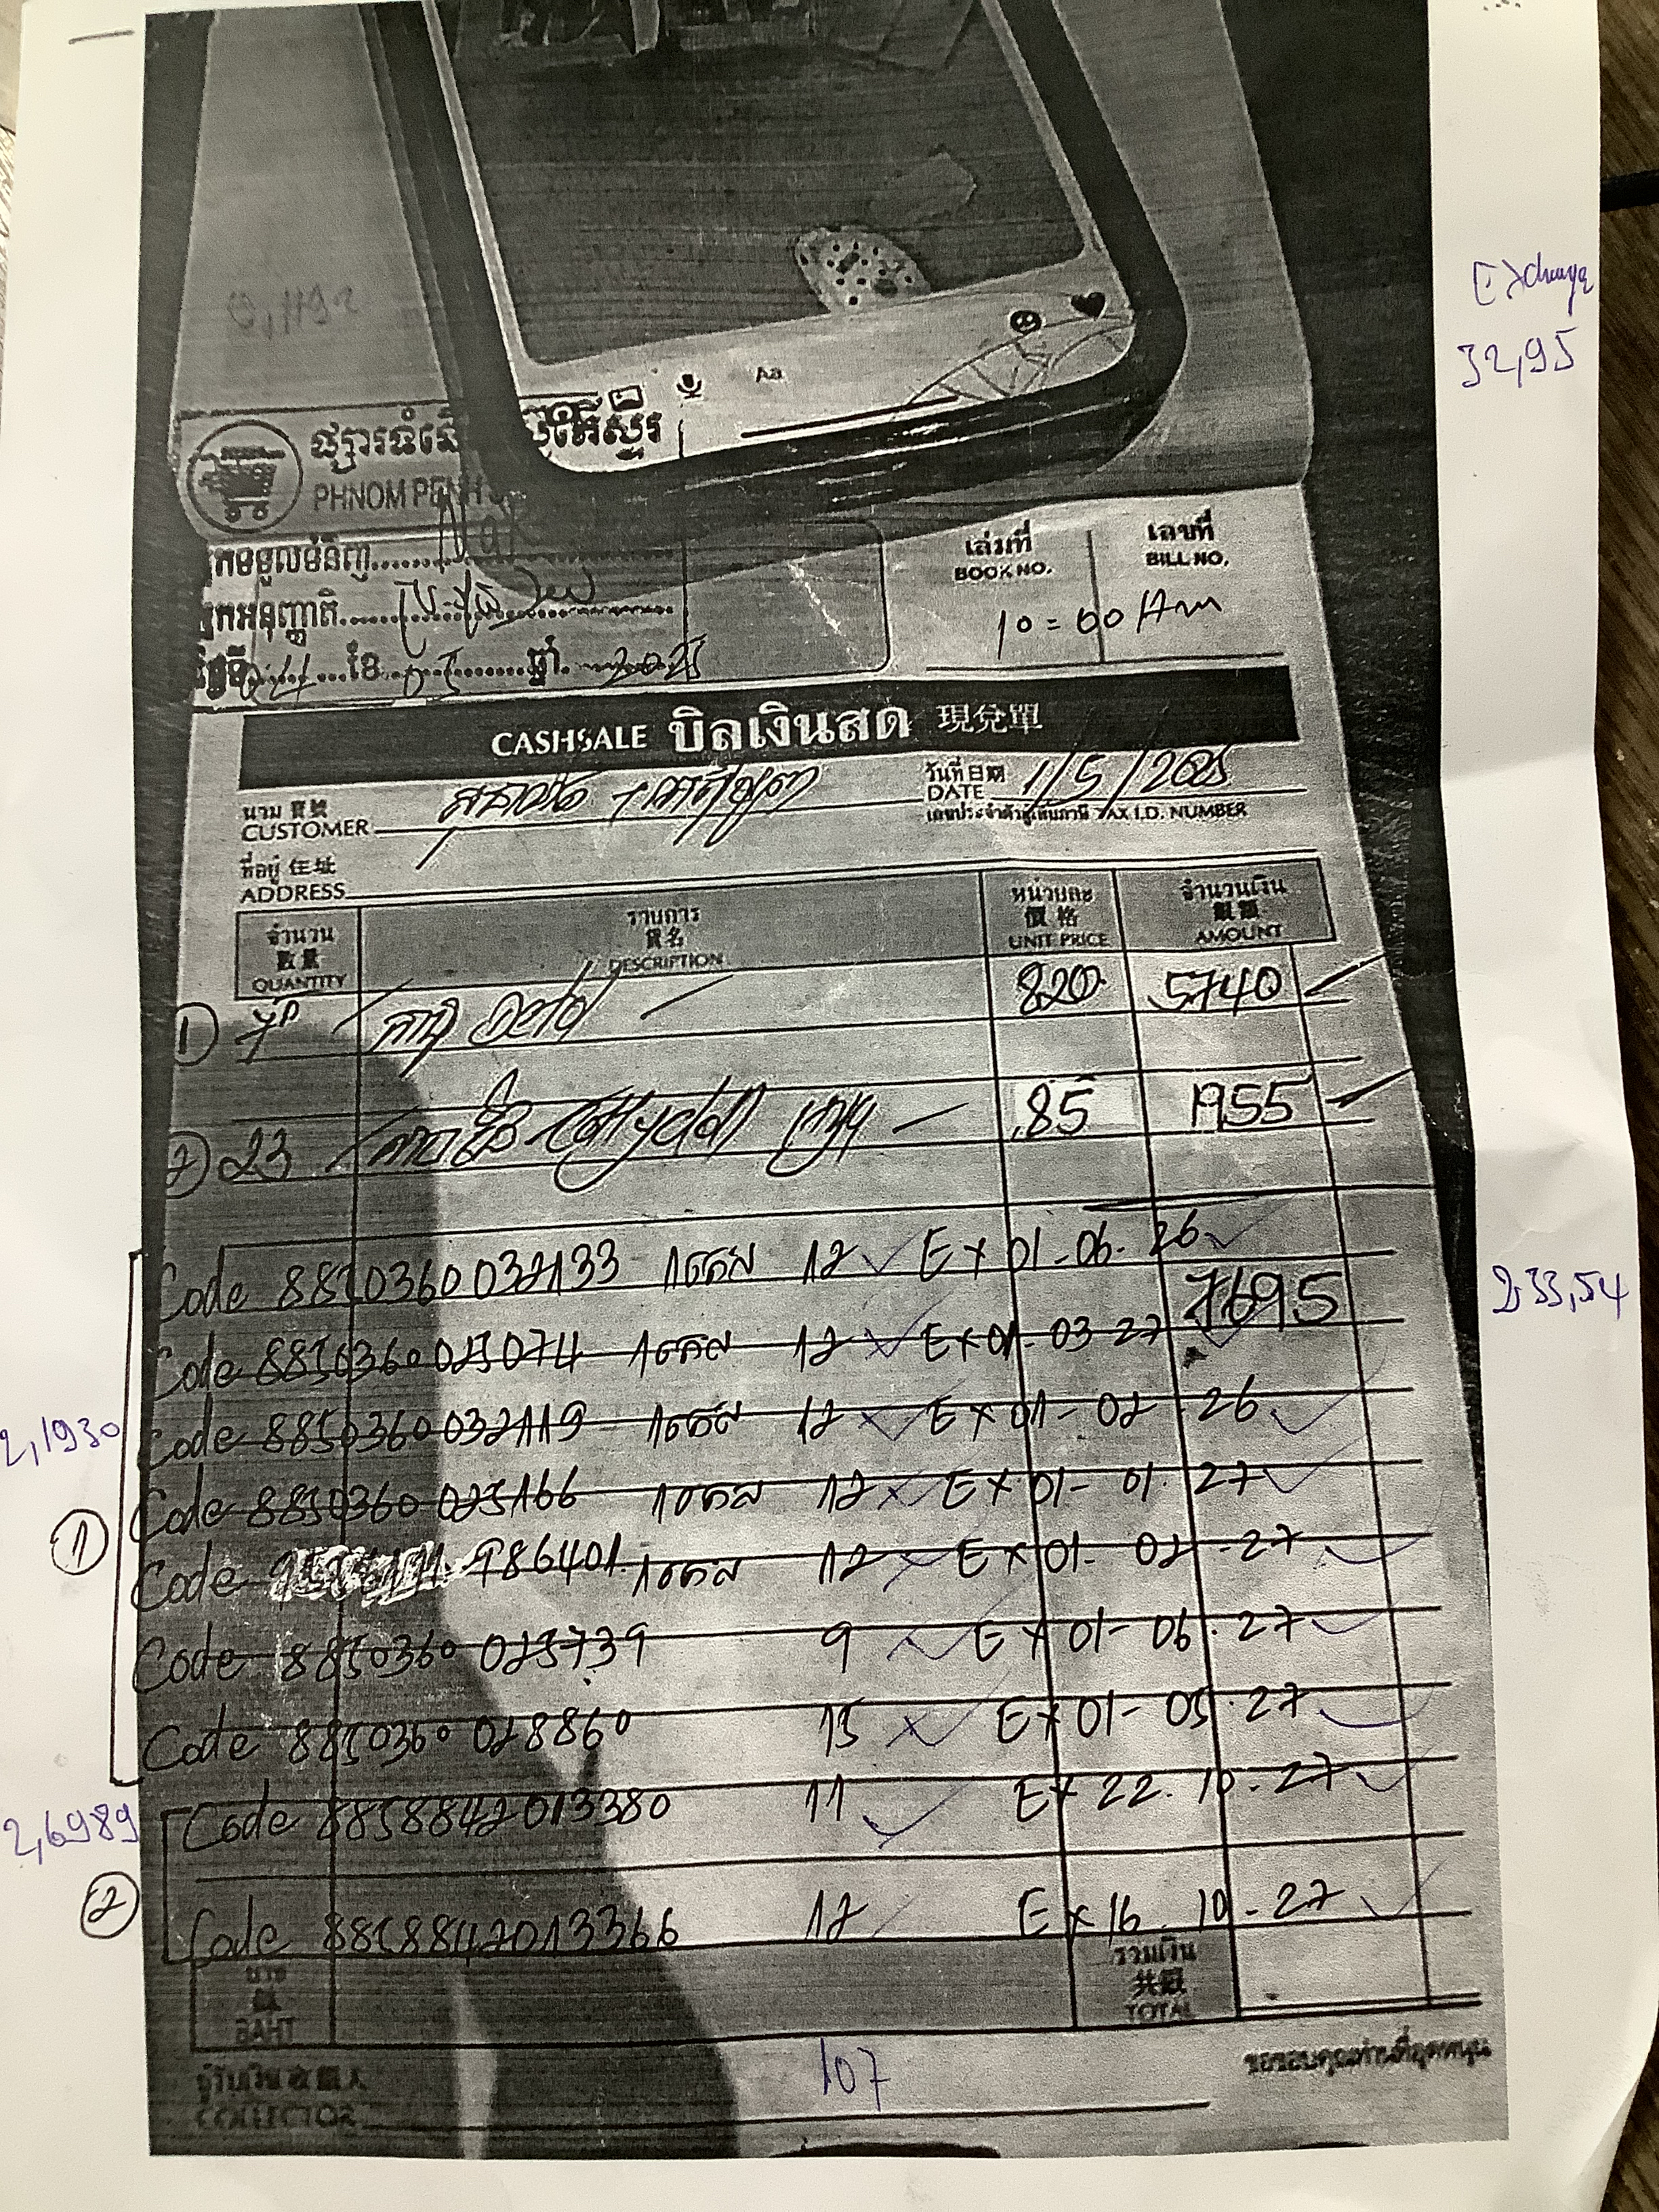 Exchange
32,95
Aa
ផ្សារទំនើប
PHNOM PENH
អ្នកទទួលទំនិញ
អ្នកអនុញ្ញាតិ
ថ្ងៃទី 04 ខែ 05 ឆ្នាំ 2025
เล่มที่ เลขที่
BOOK NO. BILL NO.
10=00 Am
CASHSALE บิลเงินสด 現兌單
นาม 寶號
CUSTOMER
วันที่ 日期
DATE 1/5/2025
เลขประจำตัวผู้เสียภาษี TAX I.D. NUMBER
ที่อยู่ 住址
ADDRESS
จำนวน 數量 QUANTITY
รายการ 貨名 DESCRIPTION
หน่วยละ 價格 UNIT PRICE
จำนวนเงิน 數額 AMOUNT
① 7 820 5740
② 23 85 1955
Code 8850360032133 12 EX 01-06-26
7695
233,54
Code 8850360025074 12 EX 01-03-27
Code 8850360032119 12 EX 01-02-26
2,1930
Code 8850360025166 12 EX 01-01-27
①
Code 986401 12 EX 01-02-27
Code 8850360025739 9 EX 01-06-27
Code 8850360028860 15 EX 01-05-27
Code 8858842013380 11 EX 22.10-27
2,6989
②
Code 8858842013366 12 EX 16.10-27
บาท BAHT
รวมเงิน 共銀 TOTAL
107
ผู้รับเงิน 收銀人
COLLECTOR
ขอขอบคุณท่านที่อุดหนุน